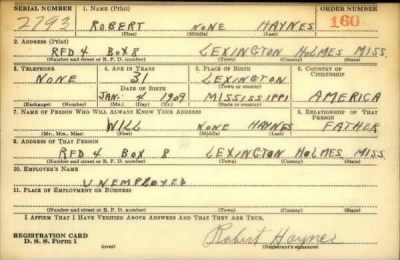 SERIAL NUMBER 1. NAME (Print) ORDER NUMBER
2793 ROBERT NONE HAYNES 160
(First) (Middle) (Last)
2. ADDRESS (Print)
RFD 4 BOX 8 LEXINGTON HOLMES MISS.
(Number and street or R. F. D. number) (Town) (County) (State)
3. TELEPHONE 4. AGE IN YEARS 5. PLACE OF BIRTH 6. COUNTRY OF CITIZENSHIP
NONE 31 LEXINGTON
DATE OF BIRTH (Town or county)
JAN. 4 1909 MISSISSIPPI AMERICA
(Exchange) (Number) (Mo.) (Day) (Yr.) (State or country)
7. NAME OF PERSON WHO WILL ALWAYS KNOW YOUR ADDRESS 8. RELATIONSHIP OF THAT PERSON
WILL NONE HAYNES FATHER
(Mr., Mrs., Miss) (First) (Middle) (Last)
9. ADDRESS OF THAT PERSON
RFD 4 BOX 8 LEXINGTON HOLMES MISS.
(Number and street or R. F. D. number) (Town) (County) (State)
10. EMPLOYER'S NAME
UNEMPLOYED
11. PLACE OF EMPLOYMENT OR BUSINESS
(Number and street or R. F. D. number) (Town) (County) (State)
I AFFIRM THAT I HAVE VERIFIED ABOVE ANSWERS AND THAT THEY ARE TRUE.
REGISTRATION CARD
D. S. S. Form 1 (over) Robert Haynes
(Registrant's signature)